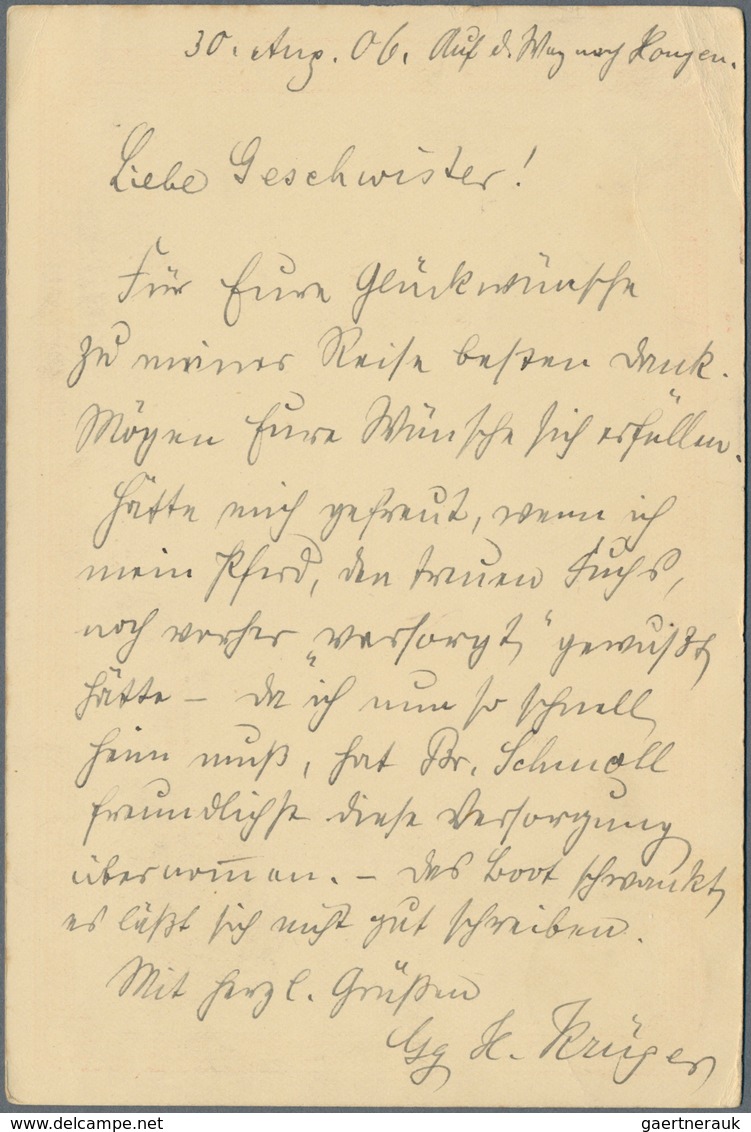 30. Aug. 06. Auf d. Weg nach
Liebe Geschwister!
Für Eure Glückwünsche
zu meiner Reise besten Dank.
Mögen Eure Wünsche sich erfüllen.
Hätte mich gefreut, wenn ich
mein Pferd, den treuen Fuchs,
noch vorher „versorgt" gewußt
hätte – da ich nun so schnell
heim muß, hat Br. Schmoll
freundlichst diese Versorgung
übernommen. – Das Boot schwankt,
es läßt sich nicht gut schreiben.
Mit herzl. Grüßen
Gg H. Krüger
gaertnerauk